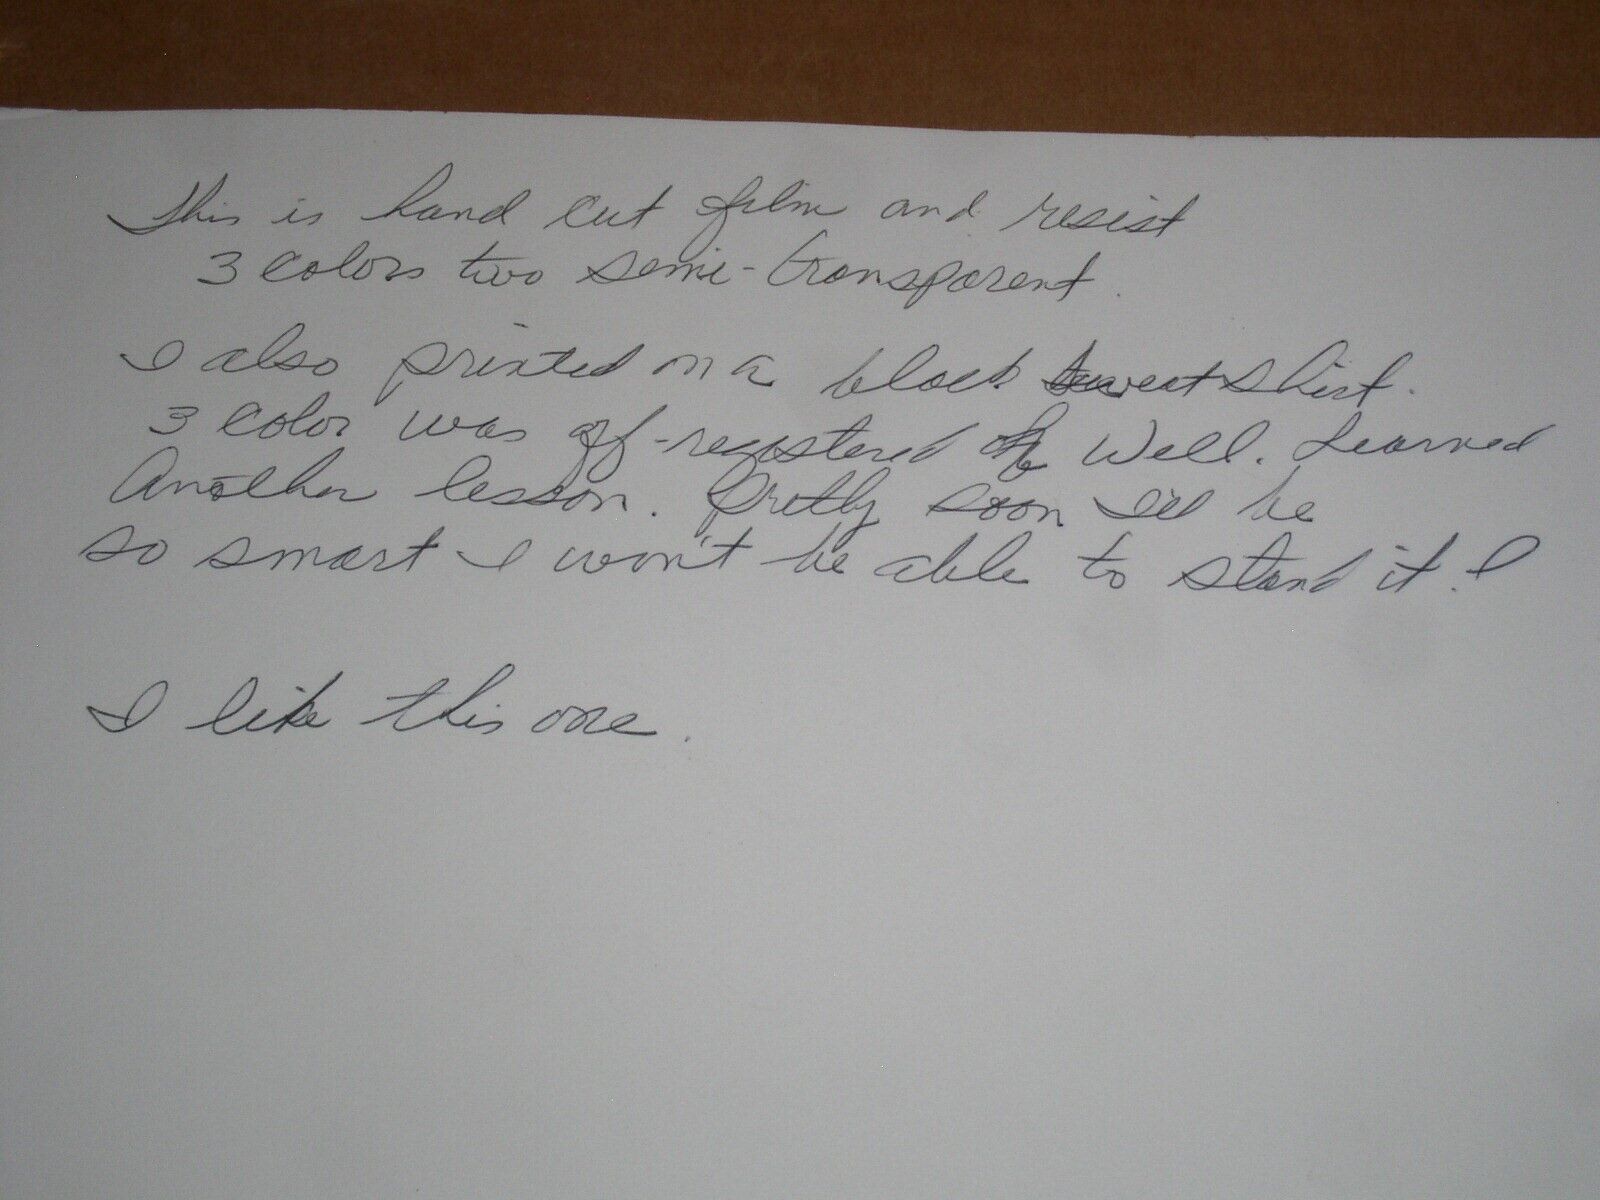 This is hand cut film and resist
3 colors two semi-transparent.
I also printed on a black sweatshirt.
3 color was off-registered Oh Well. Learned
Another lesson. Pretty soon I'll be
so smart I won't be able to stand it!
I like this one.